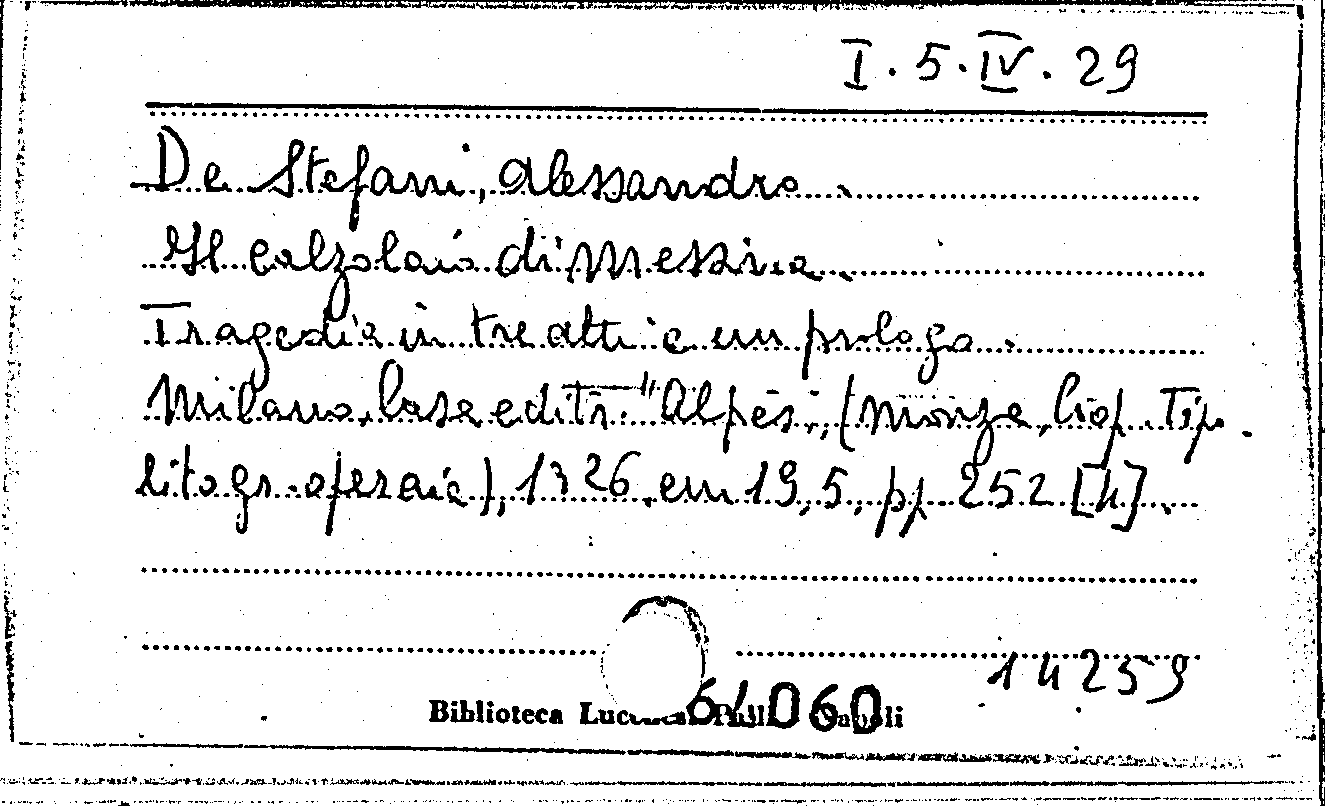 I. 5. IV. 29
De Stefani, Alessandro.
Il Calzolaio di Messina.
Tragedia in tre atti e un prologo.
Milano, Casa editr. "Alpes", (Monza, Coop. Tip.
litogr. operaia), 1926, cm 19,5, pp. 252 [4].
14259
Biblioteca 61060